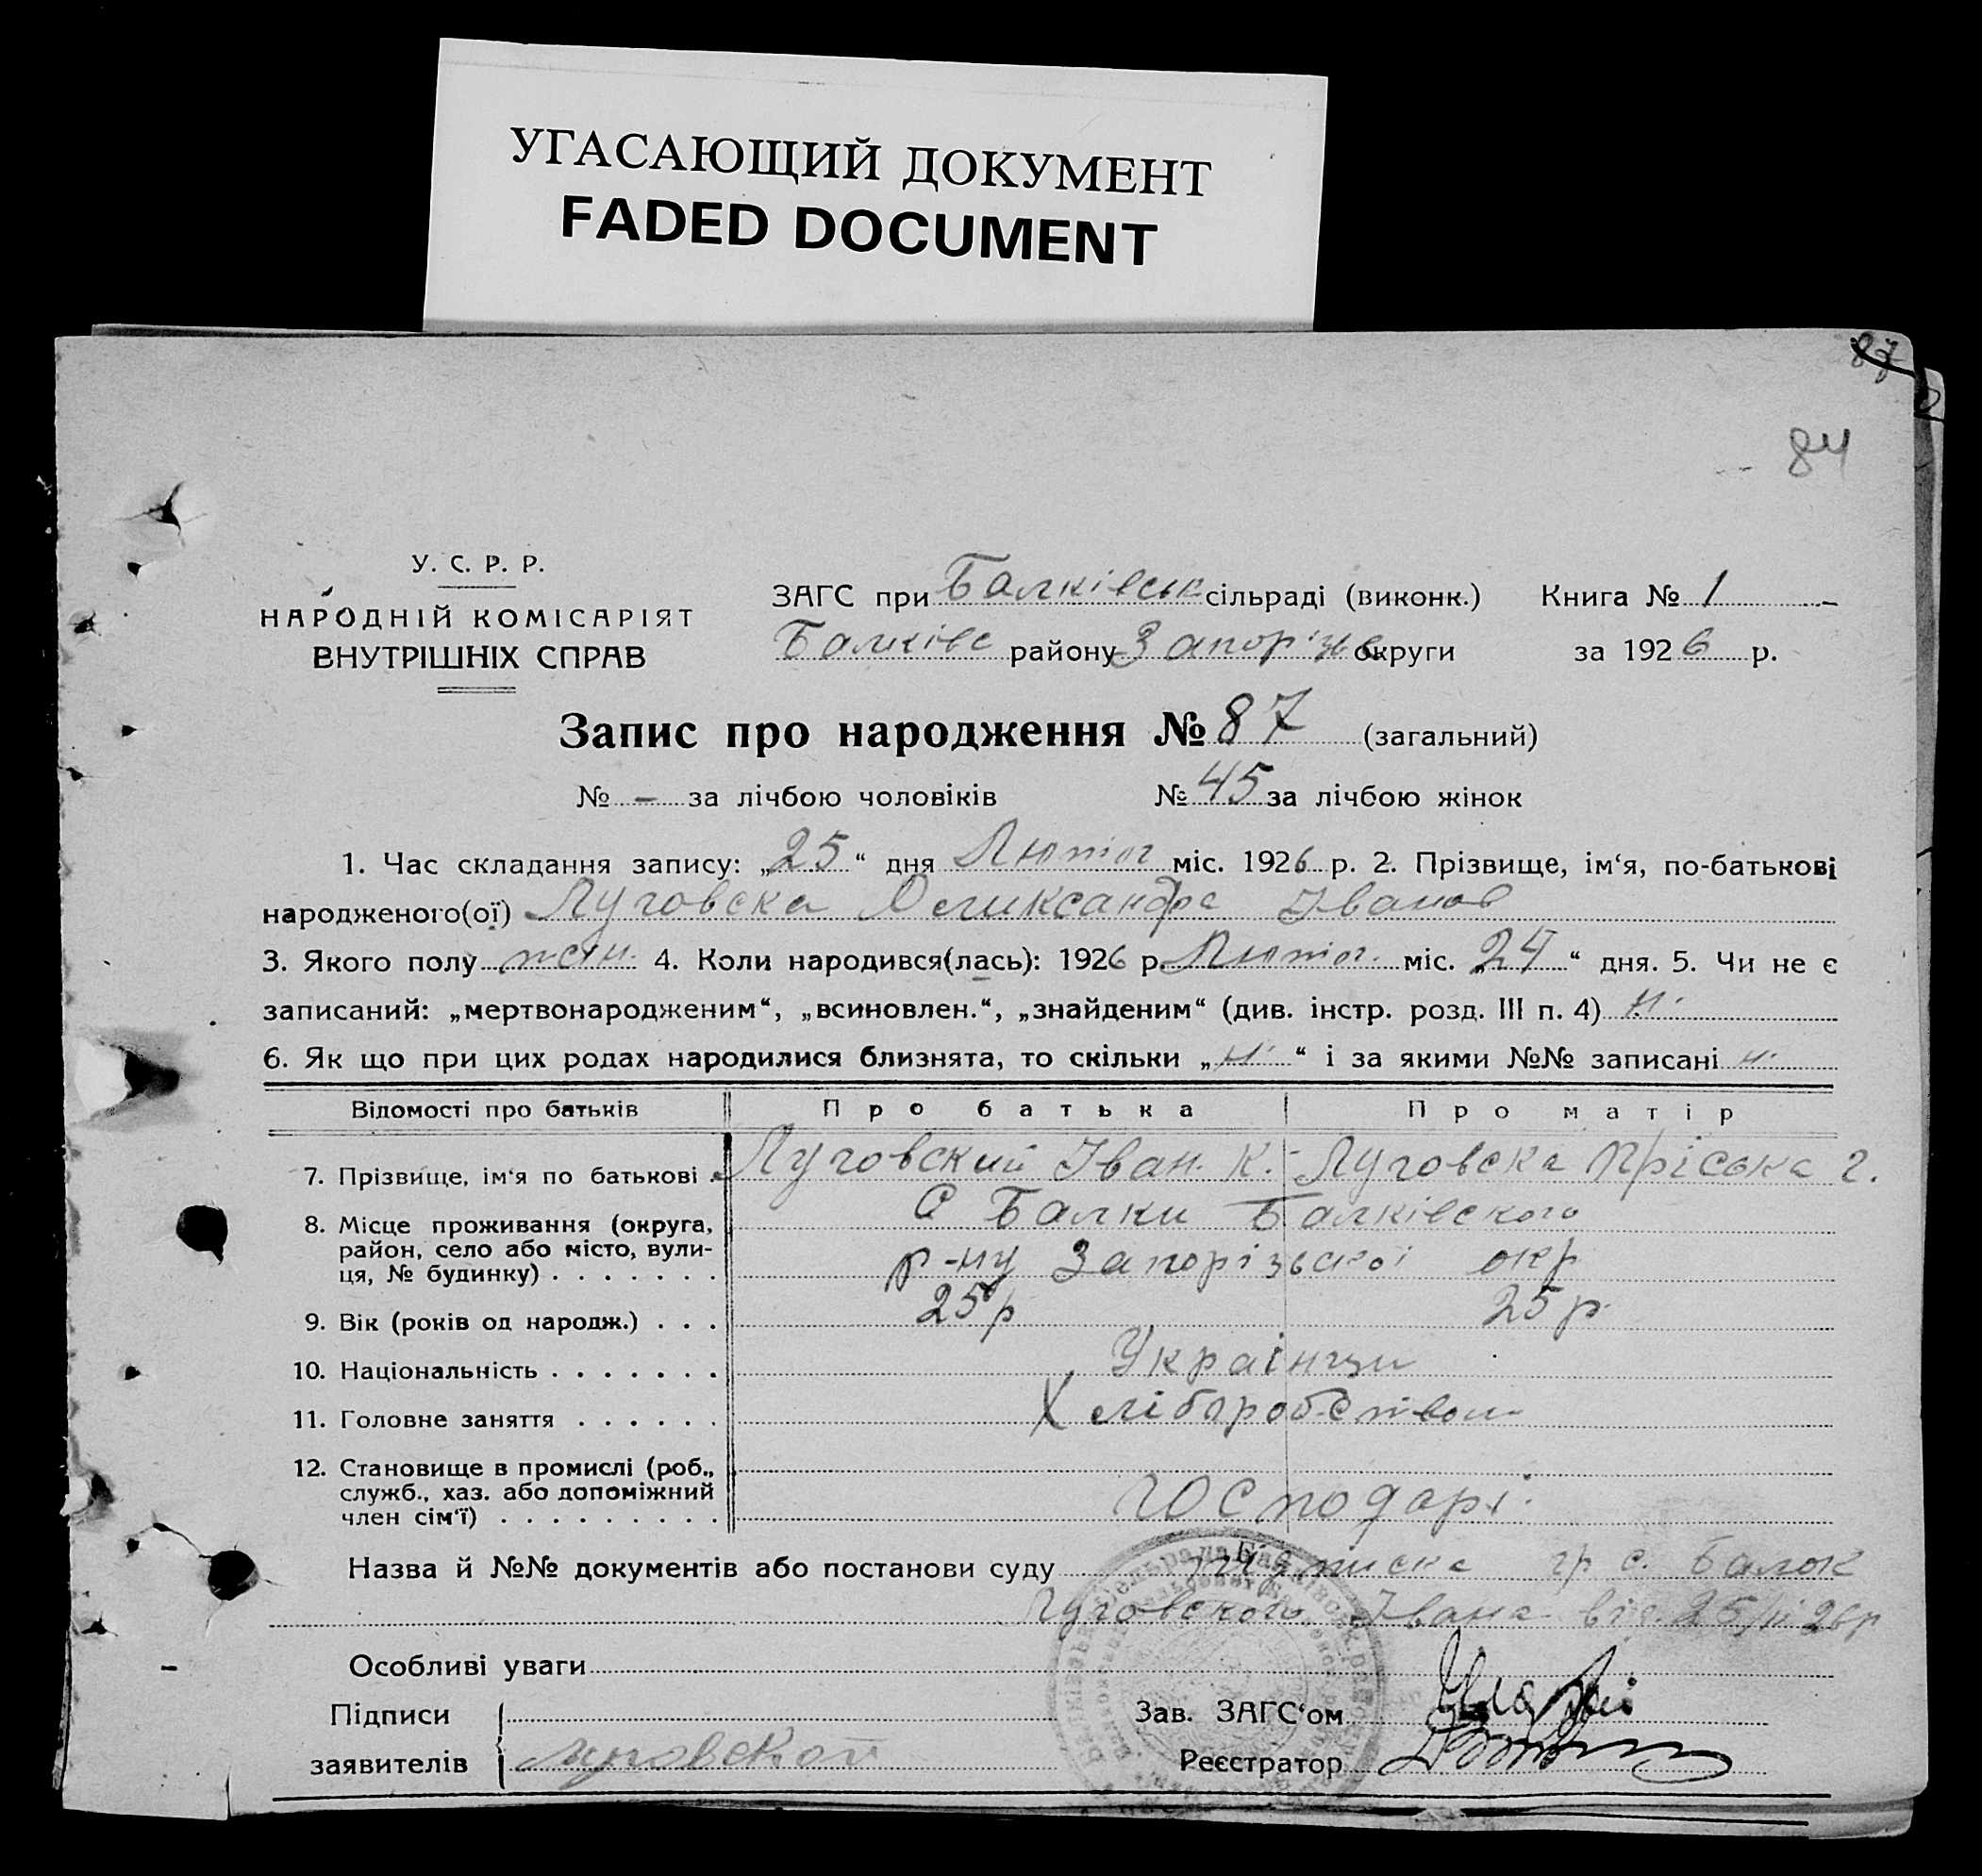 УГАСАЮЩИЙ ДОКУМЕНТ
FADED DOCUMENT
87
84
У. С. Р. Р.
НАРОДНІЙ КОМІСАРІЯТ
ВНУТРІШНІХ СПРАВ
ЗАГС при Балківськ сільраді (виконк.) Книга № 1
Балківс району Запоріж округи за 1926 р.
Запис про народження № 87 (загальний)
№ - за лічбою чоловіків № 45 за лічбою жінок
1. Час складання запису: „25“ дня Лютог міс. 1926 р. 2. Прізвище, ім‘я, по-батькові
народженого(ої) Луговска Олександра Іванов
3. Якого полу жін. 4. Коли народився(лась): 1926 р. Лютог. міс. „24“ дня. 5. Чи не є
записаний: „мертвонародженим“, „всиновлен.“, „знайденим“ (див. інстр. розд. III п. 4) н.
6. Як що при цих родах народилися близнята, то скільки „н.“ і за якими №№ записані н.
Відомості про батьків Про батька Про матір
7. Прізвище, ім‘я по батькові . Луговский Іван. К. - Луговска Пріська Г.
8. Місце проживання (округа, С Балки Балківского
район, село або місто, вули- р-ну Запорізської окр
ця, № будинку) . . . . . . .
9. Вік (років од народж.) . . . 25 р 25 р.
10. Національність . . . . . . . Українци
11. Головне заняття . . . . . . Хліборобством
12. Становище в промислі (роб.,
служб., хаз. або допоміжний Господарі.
член сім‘ї) . . . . . . . . .
Назва й №№ документів або постанови суду підписка гр с. Балок
Луговского Івана від 25/II 26 р
Особливі уваги
Підписи Зав. ЗАГС‘ом
заявителів Луговской Реєстратор